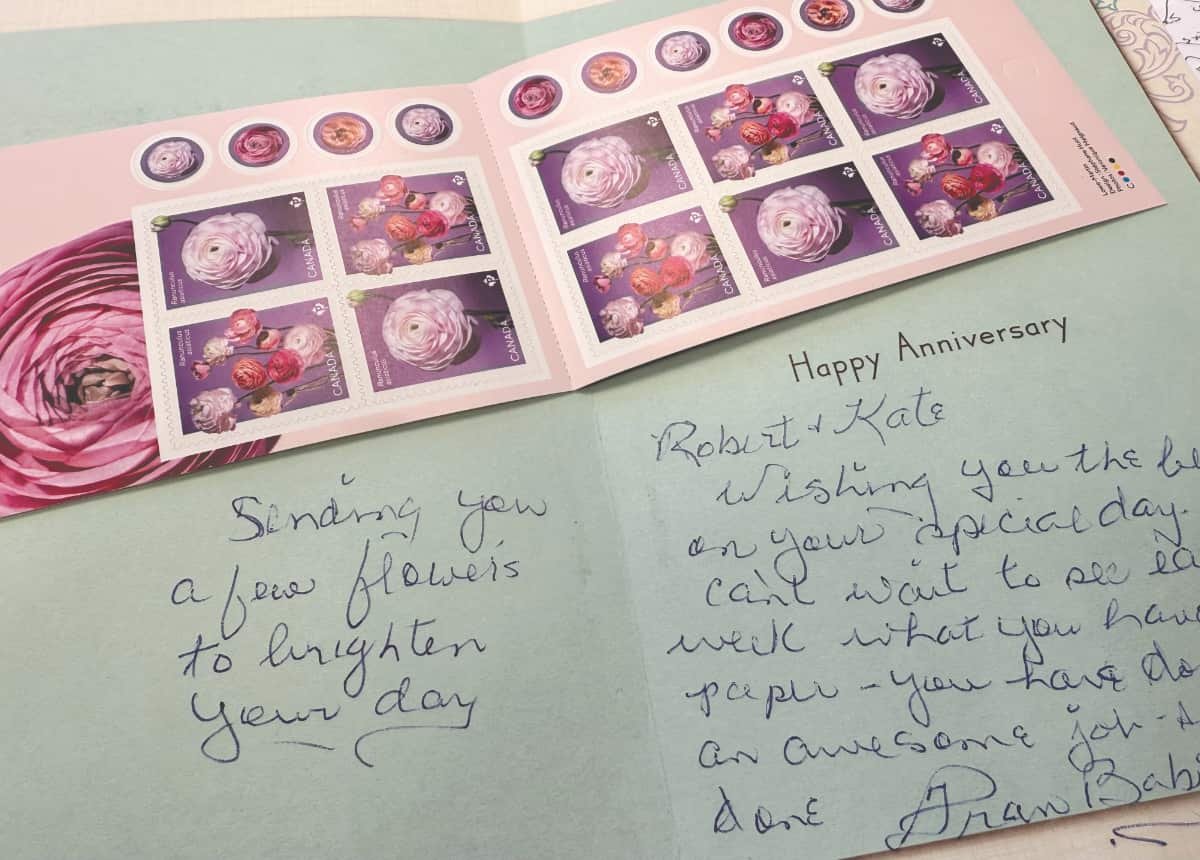 Ranunculus
asiaticus
CANADA
P
Ranunculus
asiaticus
CANADA
P
Ranunculus
asiaticus
CANADA
P
Ranunculus
asiaticus
CANADA
P
Ranunculus
asiaticus
CANADA
P
Ranunculus
asiaticus
CANADA
P
Ranunculus
asiaticus
CANADA
P
Ranunculus
asiaticus
CANADA
P
Ranunculus
asiaticus
CANADA
P
Ranunculus
asiaticus
CANADA
P
Sending you
a few flowers
to brighten
your day
Happy Anniversary
Robert + Kate
Wishing you the be
on your special day.
can't wait to see ea
week what you have
paper - you have do
an awesome job -
done Fran Babi